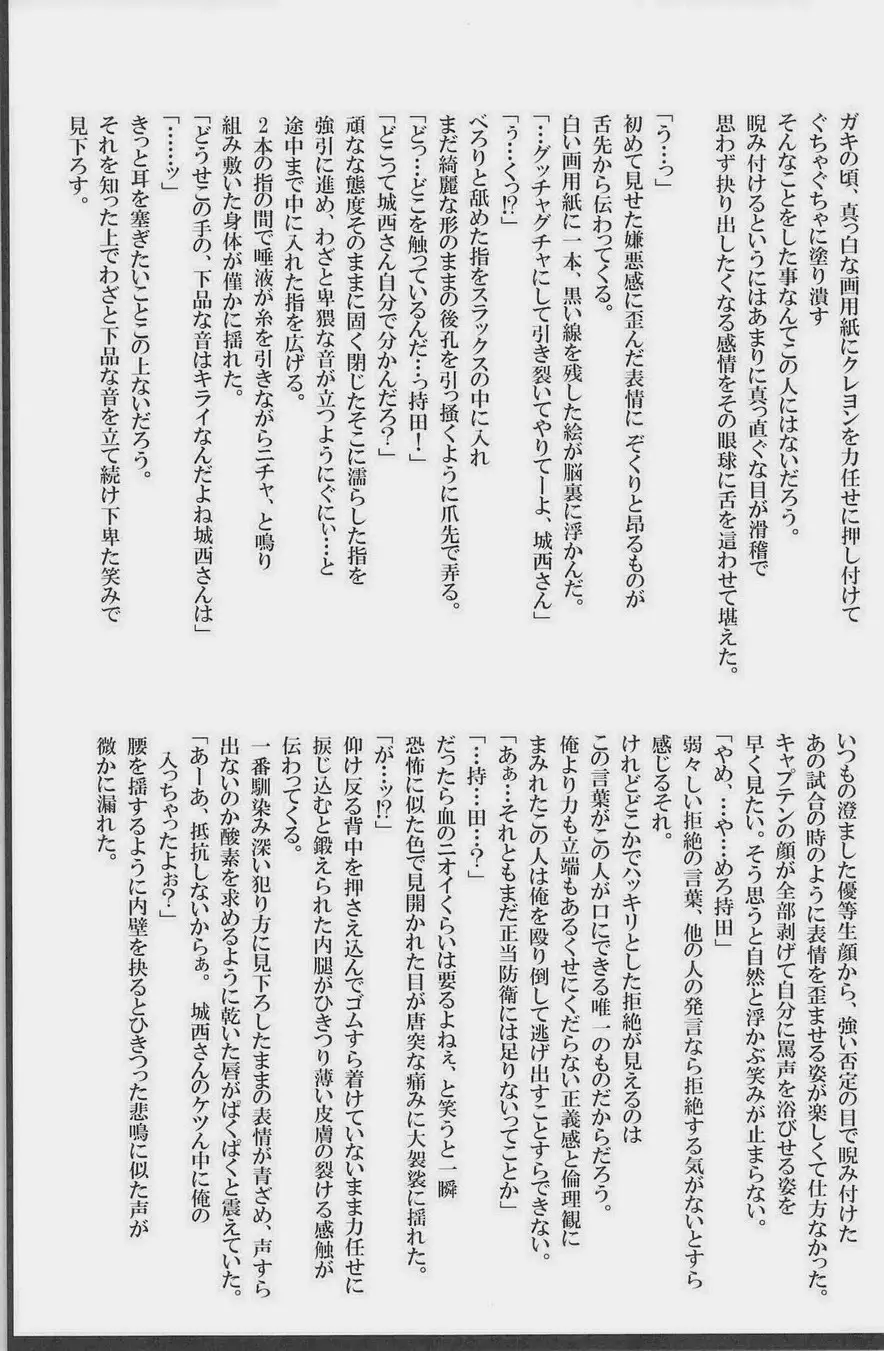 ガキの頃、真っ白な画用紙にクレヨンを力任せに押し付けて
ぐちゃぐちゃに塗り潰す
そんなことをした事なんてこの人にはないだろう。
睨み付けるというにはあまりに真っ直ぐな目が滑稽で
思わず抉り出したくなる感情をその眼球に舌を這わせて堪えた。
「う…っ」
初めて見せた嫌悪感に歪んだ表情に ぞくりと昂るものが
舌先から伝わってくる。
白い画用紙に一本、黒い線を残した絵が脳裏に浮かんだ。
「…グッチャグチャにして引き裂いてやりてーよ、城西さん」
「ぅ…くっ!?」
べろりと舐めた指をスラックスの中に入れ
まだ綺麗な形のままの後孔を引っ掻くように爪先で弄る。
「どっ…どこを触っているんだ…っ持田！」
「どこって城西さん自分で分かんだろ？」
頑なな態度そのままに固く閉じたそこに濡らした指を
強引に進め、わざと卑猥な音が立つようにぐにぃ…と
途中まで中に入れた指を広げる。
2本の指の間で唾液が糸を引きながらニチャ、と鳴り
組み敷いた身体が僅かに揺れた。
「どうせこの手の、下品な音はキライなんだよね城西さんは」
「……ッ」
きっと耳を塞ぎたいことこの上ないだろう。
それを知った上でわざと下品な音を立て続け下卑た笑みで
見下ろす。
いつもの澄ました優等生顔から、強い否定の目で睨み付けた
あの試合の時のように表情を歪ませる姿が楽しくて仕方なかった。
キャプテンの顔が全部剥げて自分に罵声を浴びせる姿を
早く見たい。そう思うと自然と浮かぶ笑みが止まらない。
「やめ、…や…めろ持田」
弱々しい拒絶の言葉、他の人の発言なら拒絶する気がないとすら
感じるそれ。
けれどどこかでハッキリとした拒絶が見えるのは
この言葉がこの人が口にできる唯一のものだからだろう。
俺より力も立端もあるくせにくだらない正義感と倫理観に
まみれたこの人は俺を殴り倒して逃げ出すことすらできない。
「あぁ…それともまだ正当防衛には足りないってことか」
「…持…田…？」
だったら血のニオイくらいは要るよねぇ、と笑うと一瞬
恐怖に似た色で見開かれた目が唐突な痛みに大袈裟に揺れた。
「が…ッ!?」
仰け反る背中を押さえ込んでゴムすら着けていないまま力任せに
捩じ込むと鍛えられた内腿がひきつり薄い皮膚の裂ける感触が
伝わってくる。
一番馴染み深い犯り方に見下ろしたままの表情が青ざめ、声すら
出ないのか酸素を求めるように乾いた唇がぱくぱくと震えていた。
「あーあ、抵抗しないからぁ。　城西さんのケツん中に俺の
入っちゃったよぉ？」
腰を揺するように内壁を抉るとひきつった悲鳴に似た声が
微かに漏れた。